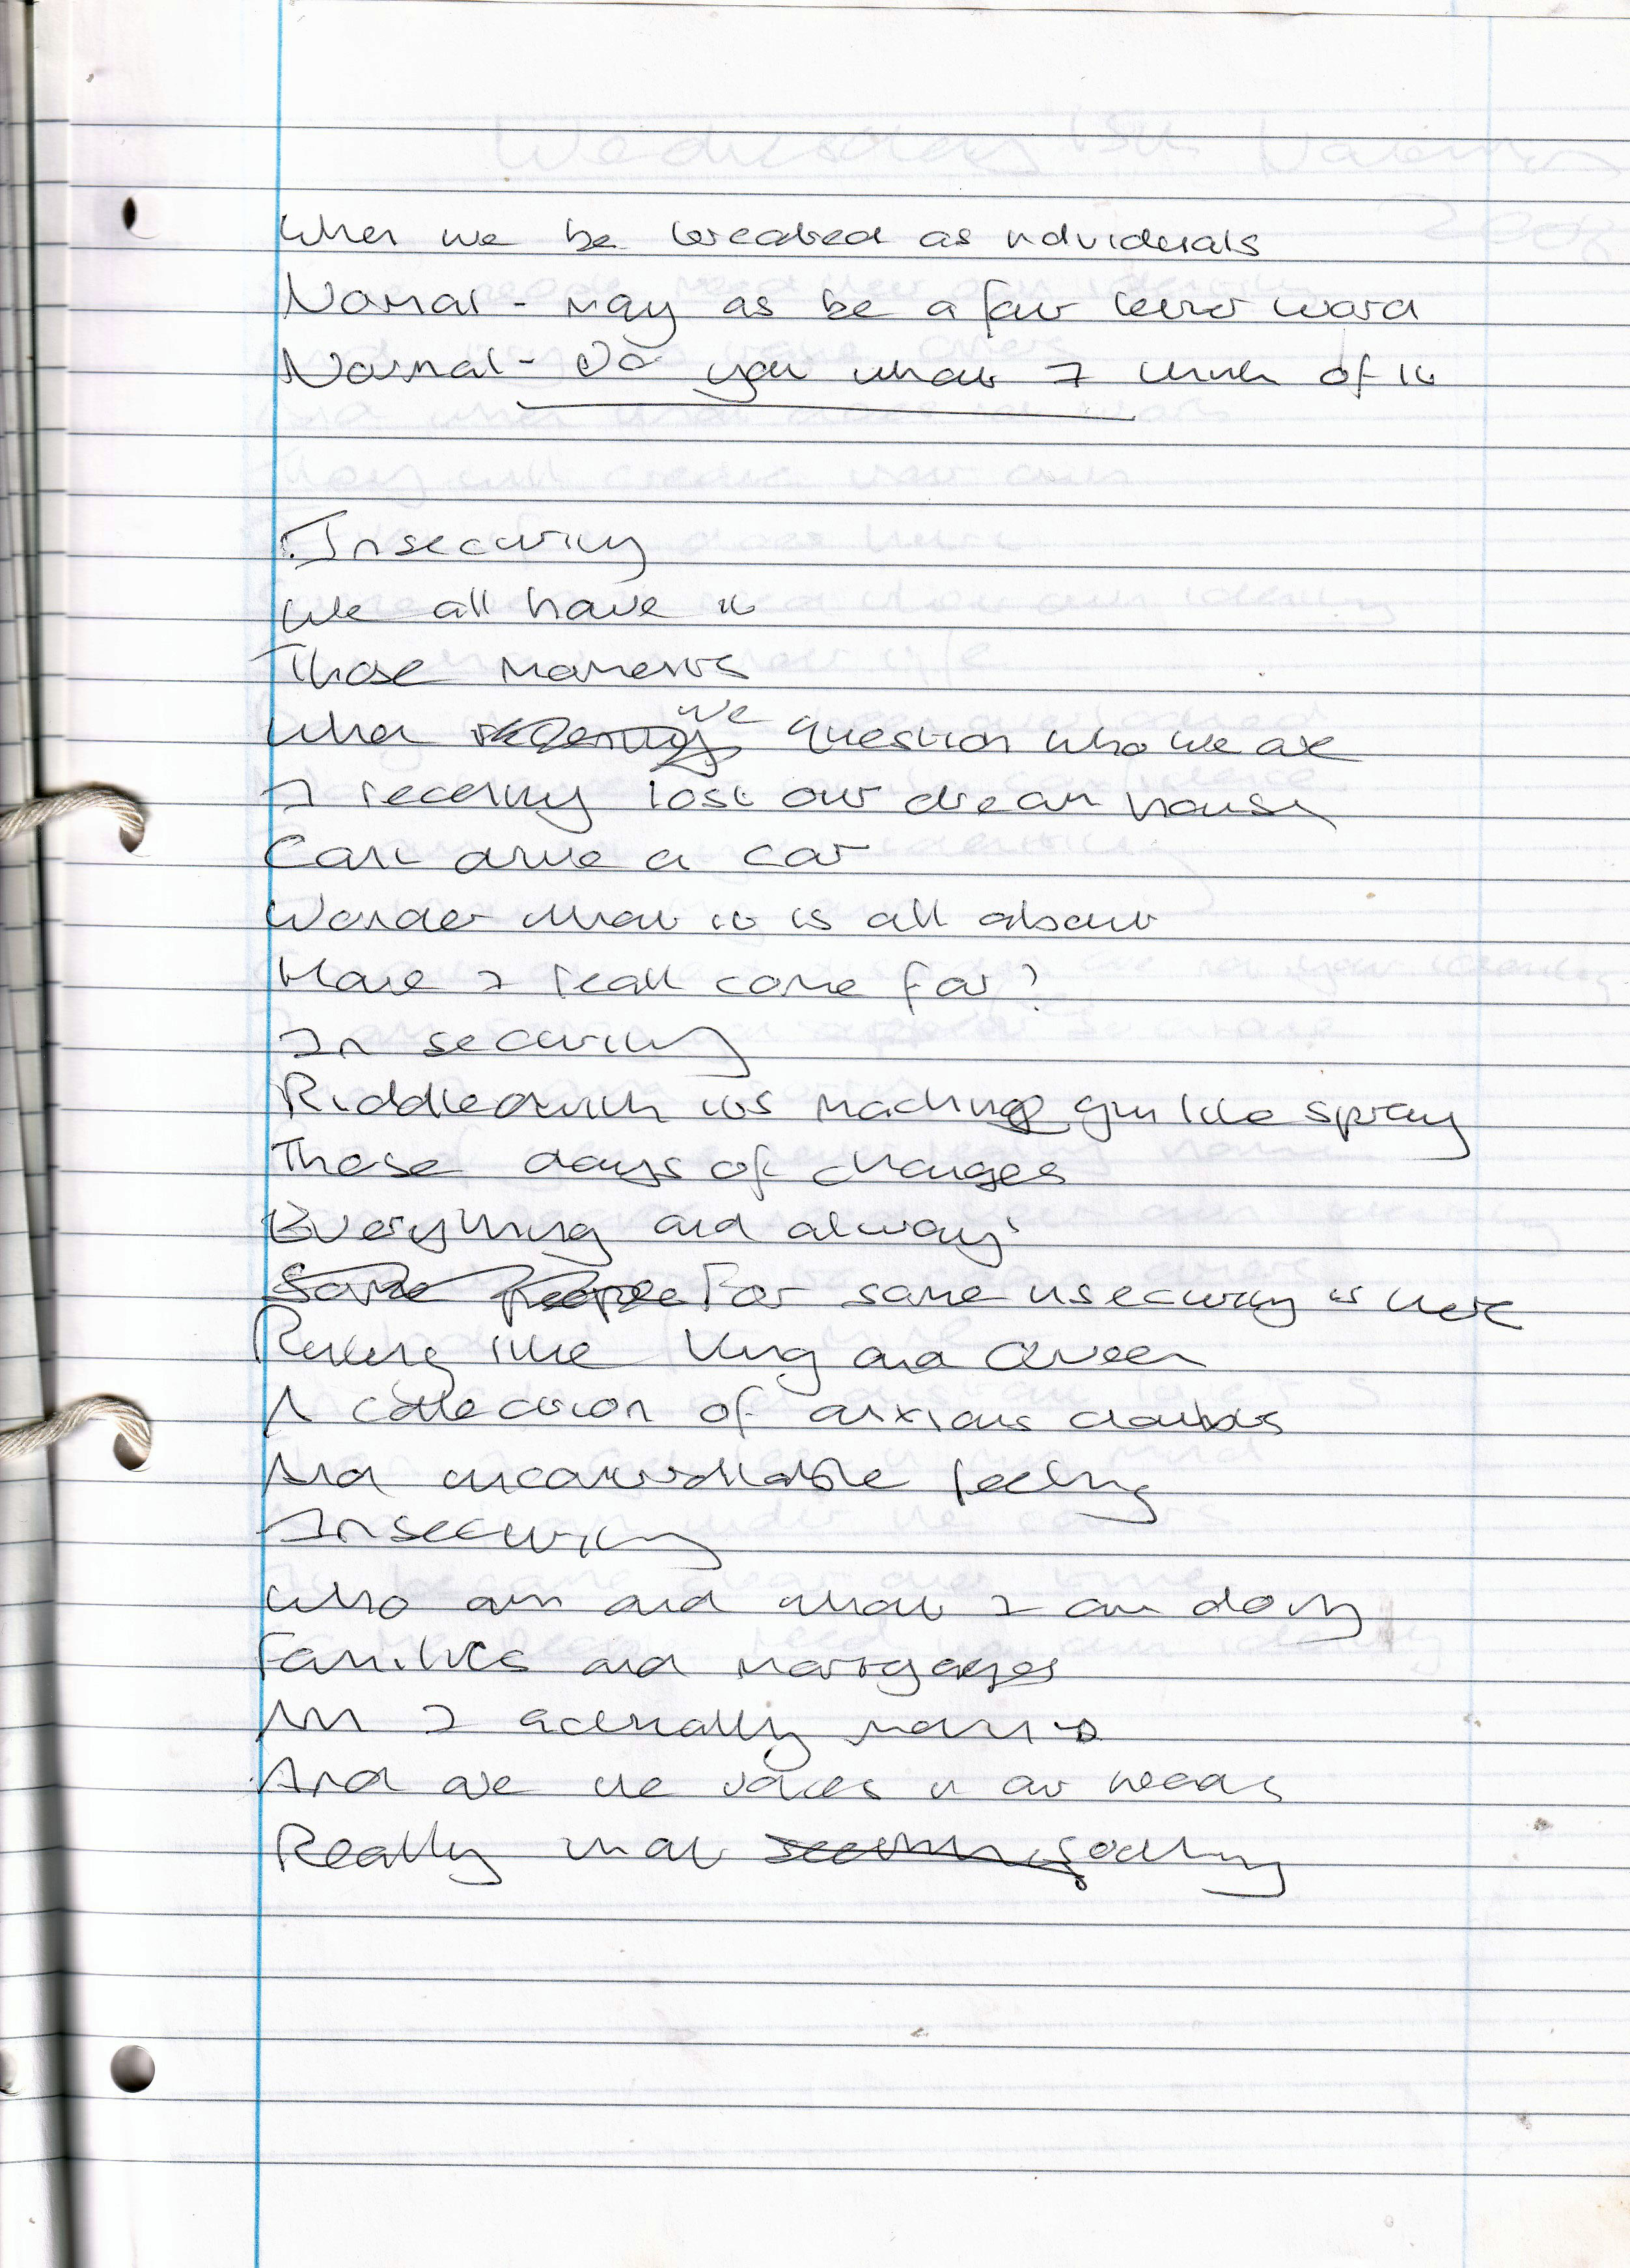 When we be treated as individuals
Normal - may as be a four letter word
Normal - Do you what I think of it
Insecurity
We all have it
Those moments
When we question who we are
I recently lost our dream house
Cant drive a car
Wonder what it is all about
Have I reall come far?
In security
Riddled with its machine gun like spray
These days of changes
Everything and always
For some insecurity is here
Ruling like King and Queen
A collection of anxious doubts
And uncontrollable feeling
Insecurity
Who am and what I am doing
Families and mortgages
Am I actually normal
And are the voices in our heads
Really that